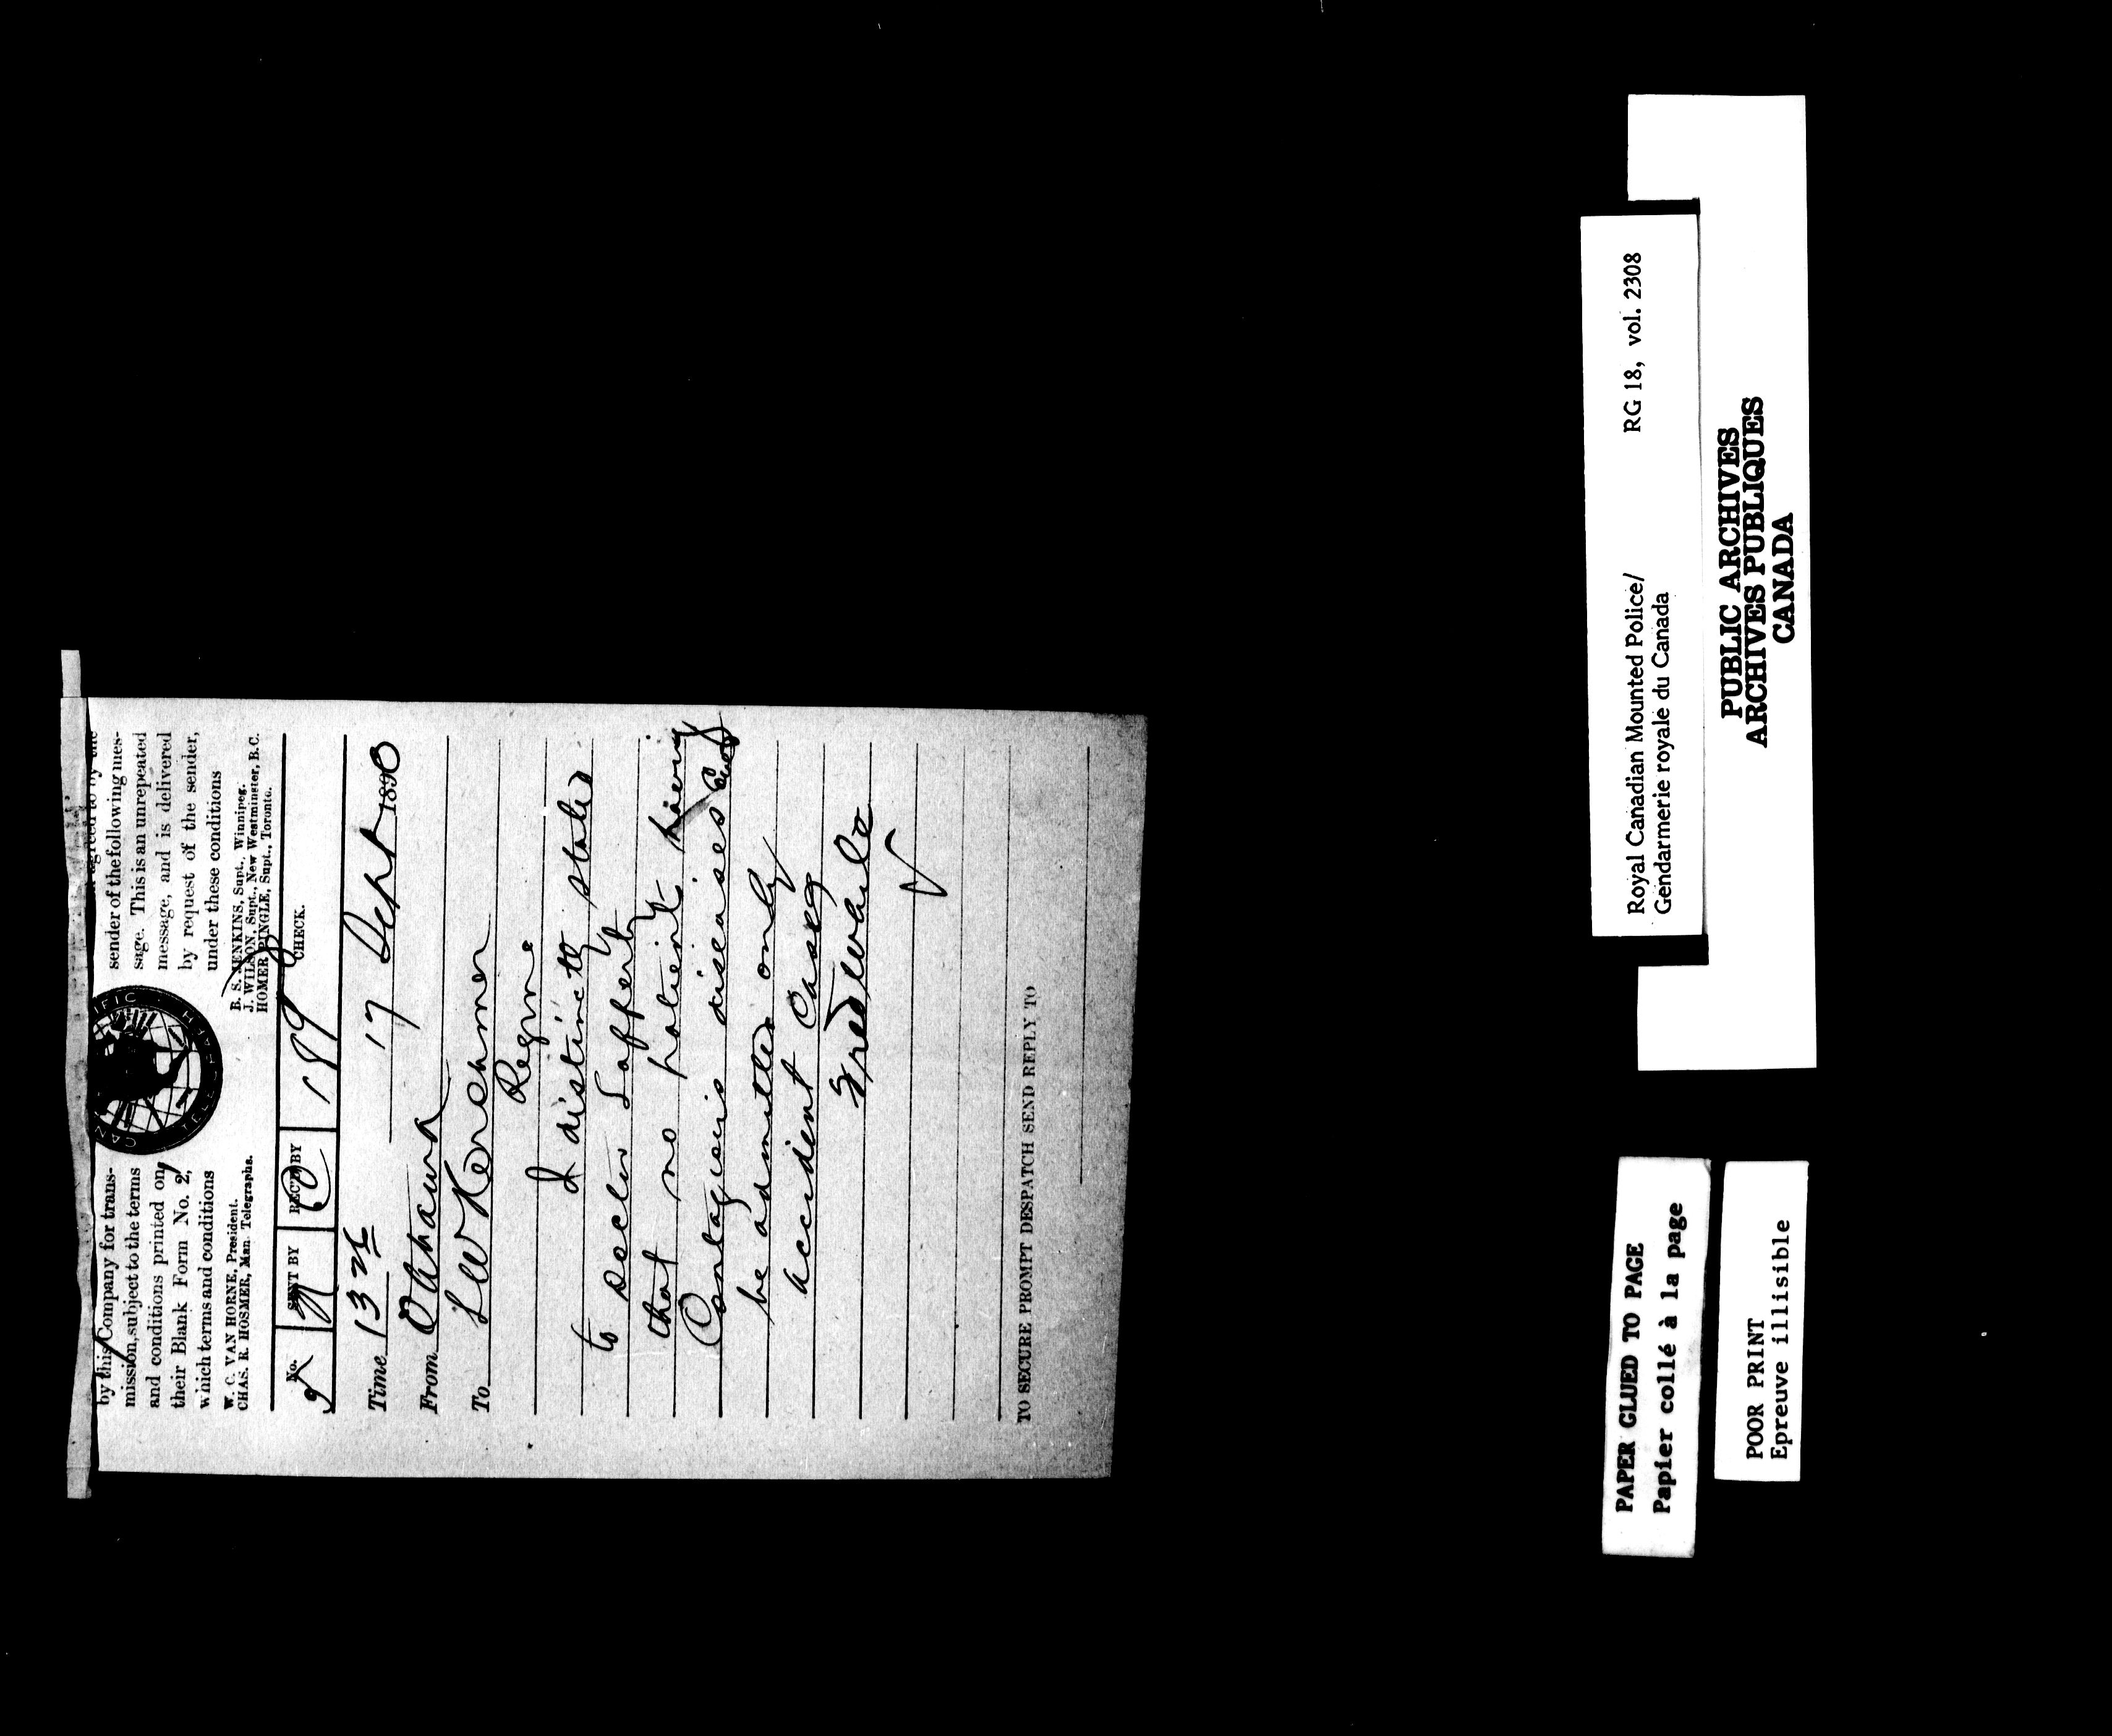 by this Company for trans-
mission, subject to the terms
and conditions printed on
their Blank Form No. 2,
which terms and conditions
agreed to by the
sender of the following mes-
sage. This is an unrepeated
message, and is delivered
by request of the sender,
under these conditions
W. C. VAN HORNE, President.
CHAS. R. HOSMER, Man. Telegraphs.
B. S. JENKINS, Supt., Winnipeg.
J. WILSON, Supt., New Westminster, B.C.
HOMER PINGLE, Supt., Toronto.
No. SENT BY REC'D BY CHECK.
Time 13 17 Sept 1890
From Ottawa
To L W Herchmer
Regina
I distinctly stated
to Docter Lafferty
that no patients having
Contagious diseases
be admitted only
accident Cases
Fred White
TO SECURE PROMPT DESPATCH SEND REPLY TO
Royal Canadian Mounted Police/ RG 18, vol. 2308
Gendarmerie royale du Canada
PUBLIC ARCHIVES
ARCHIVES PUBLIQUES
CANADA
PAPER GLUED TO PAGE
Papier collé à la page
POOR PRINT
Epreuve illisible